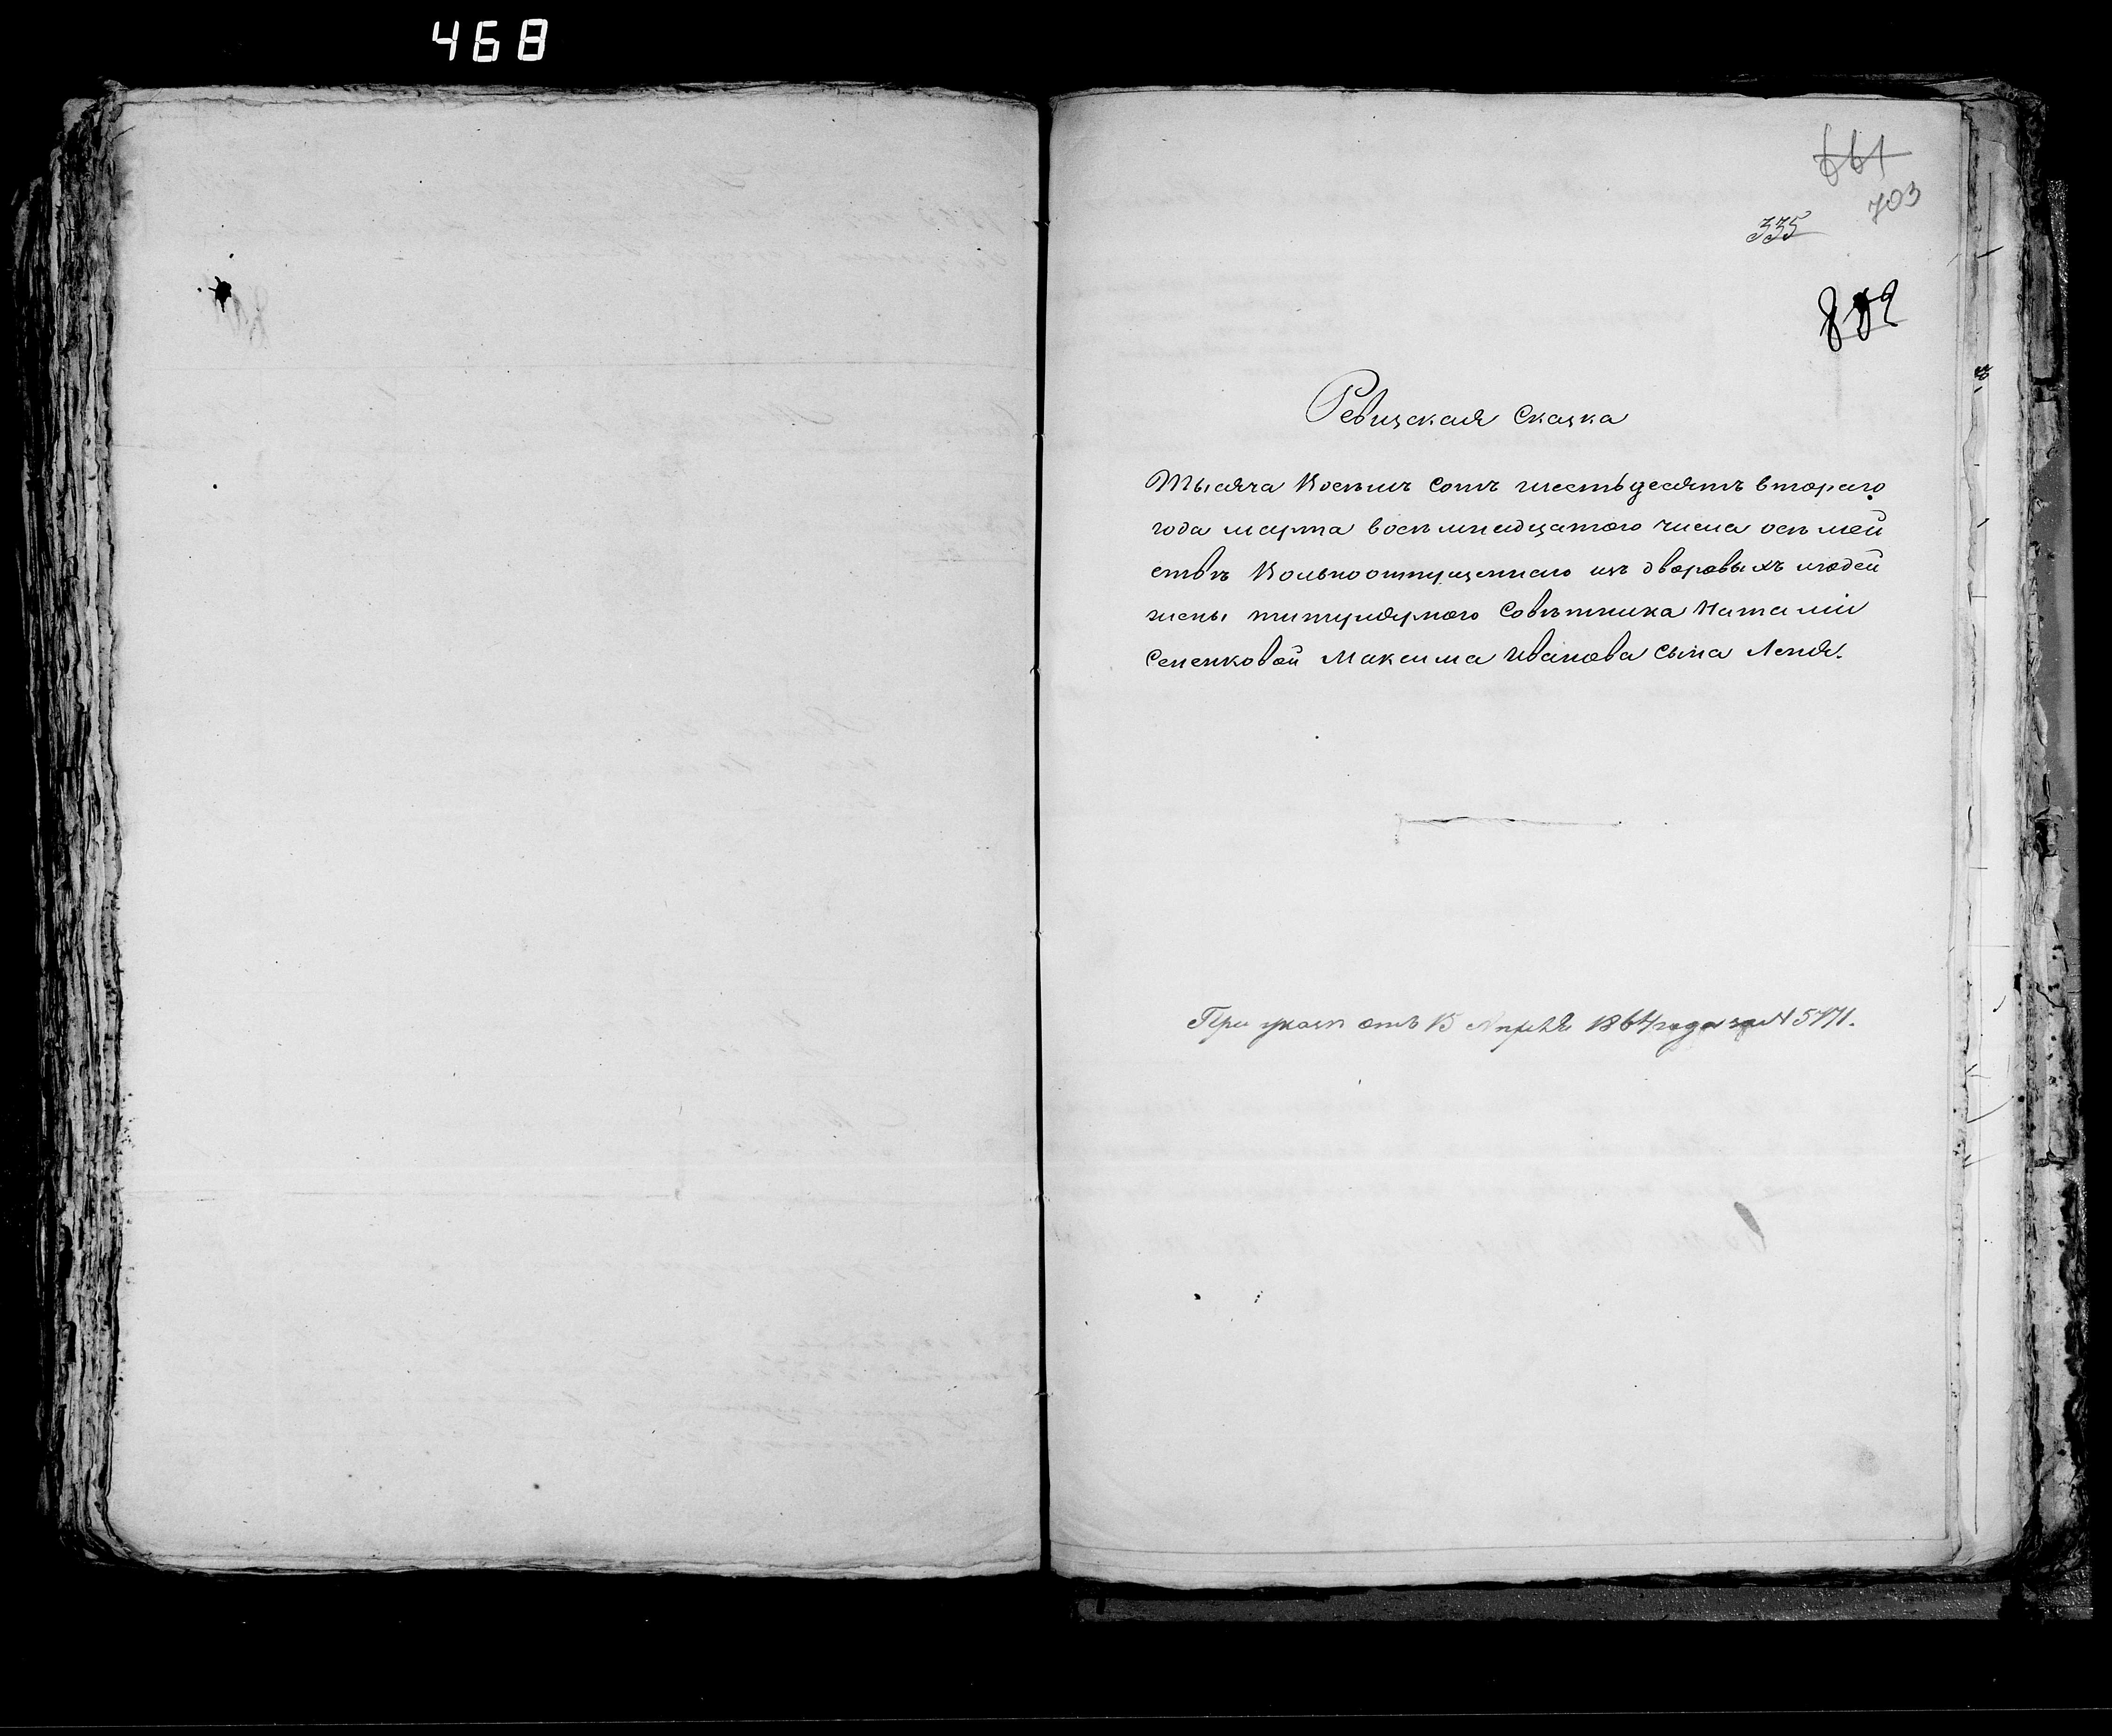 468
661
703
335
Ревизская Сказка
Тысяча Восемъ Сотъ шестьдесятъ втораго
года марта восемнадцатого числа о семей
ствѣ Вольноотпущеннаго изъ дворовыхъ людей
жены титулярного Совѣтника Наталіи
Сененковой Максима Иванова Сына Лепя.
При указѣ отъ 15 Апрѣля 1864 года за N 5771.